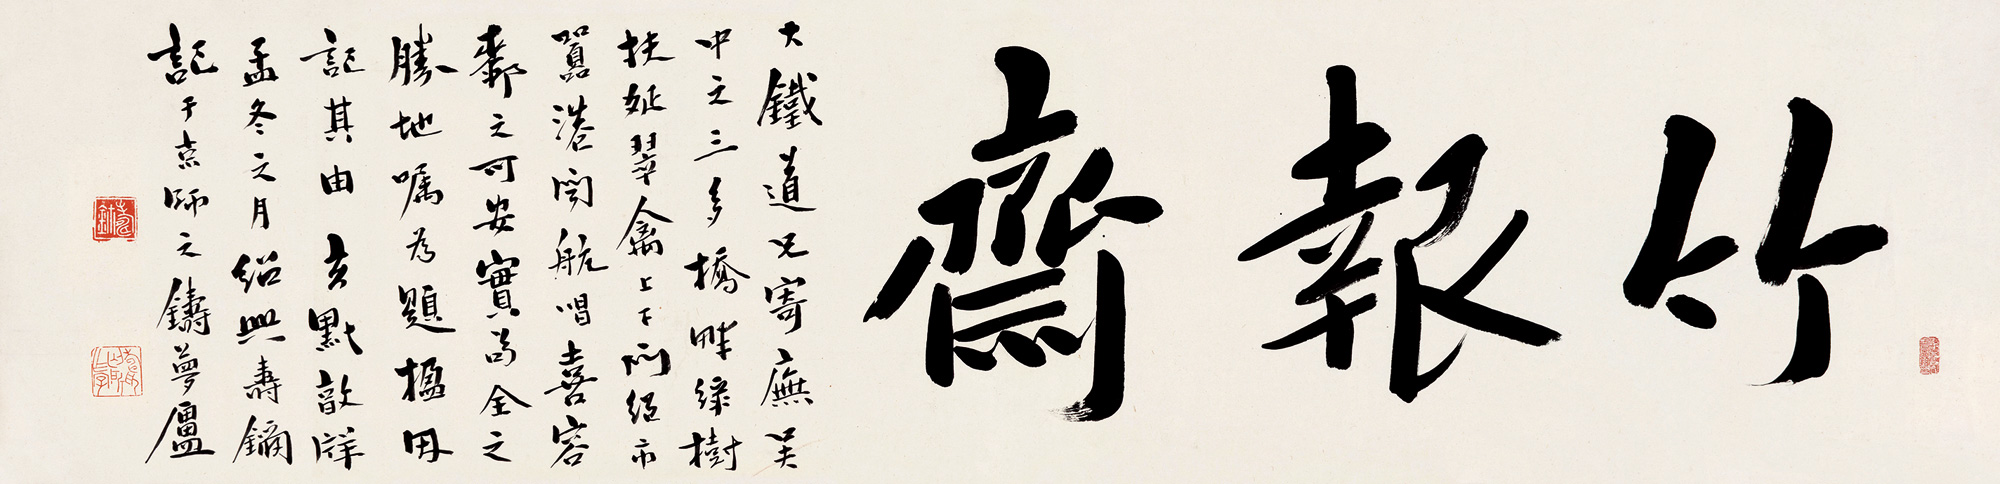 竹報齋
大鐵道兄寄廡吴
中之三多橋畔綠樹
扶疏翠禽上下闹絕市
囂港闻航唱喜容
鄰之可安實尚全之
勝地囑為題楹用
記其由 亥默敦牂
孟冬之月紹興壽鏑
記于京師之鑄夢廬